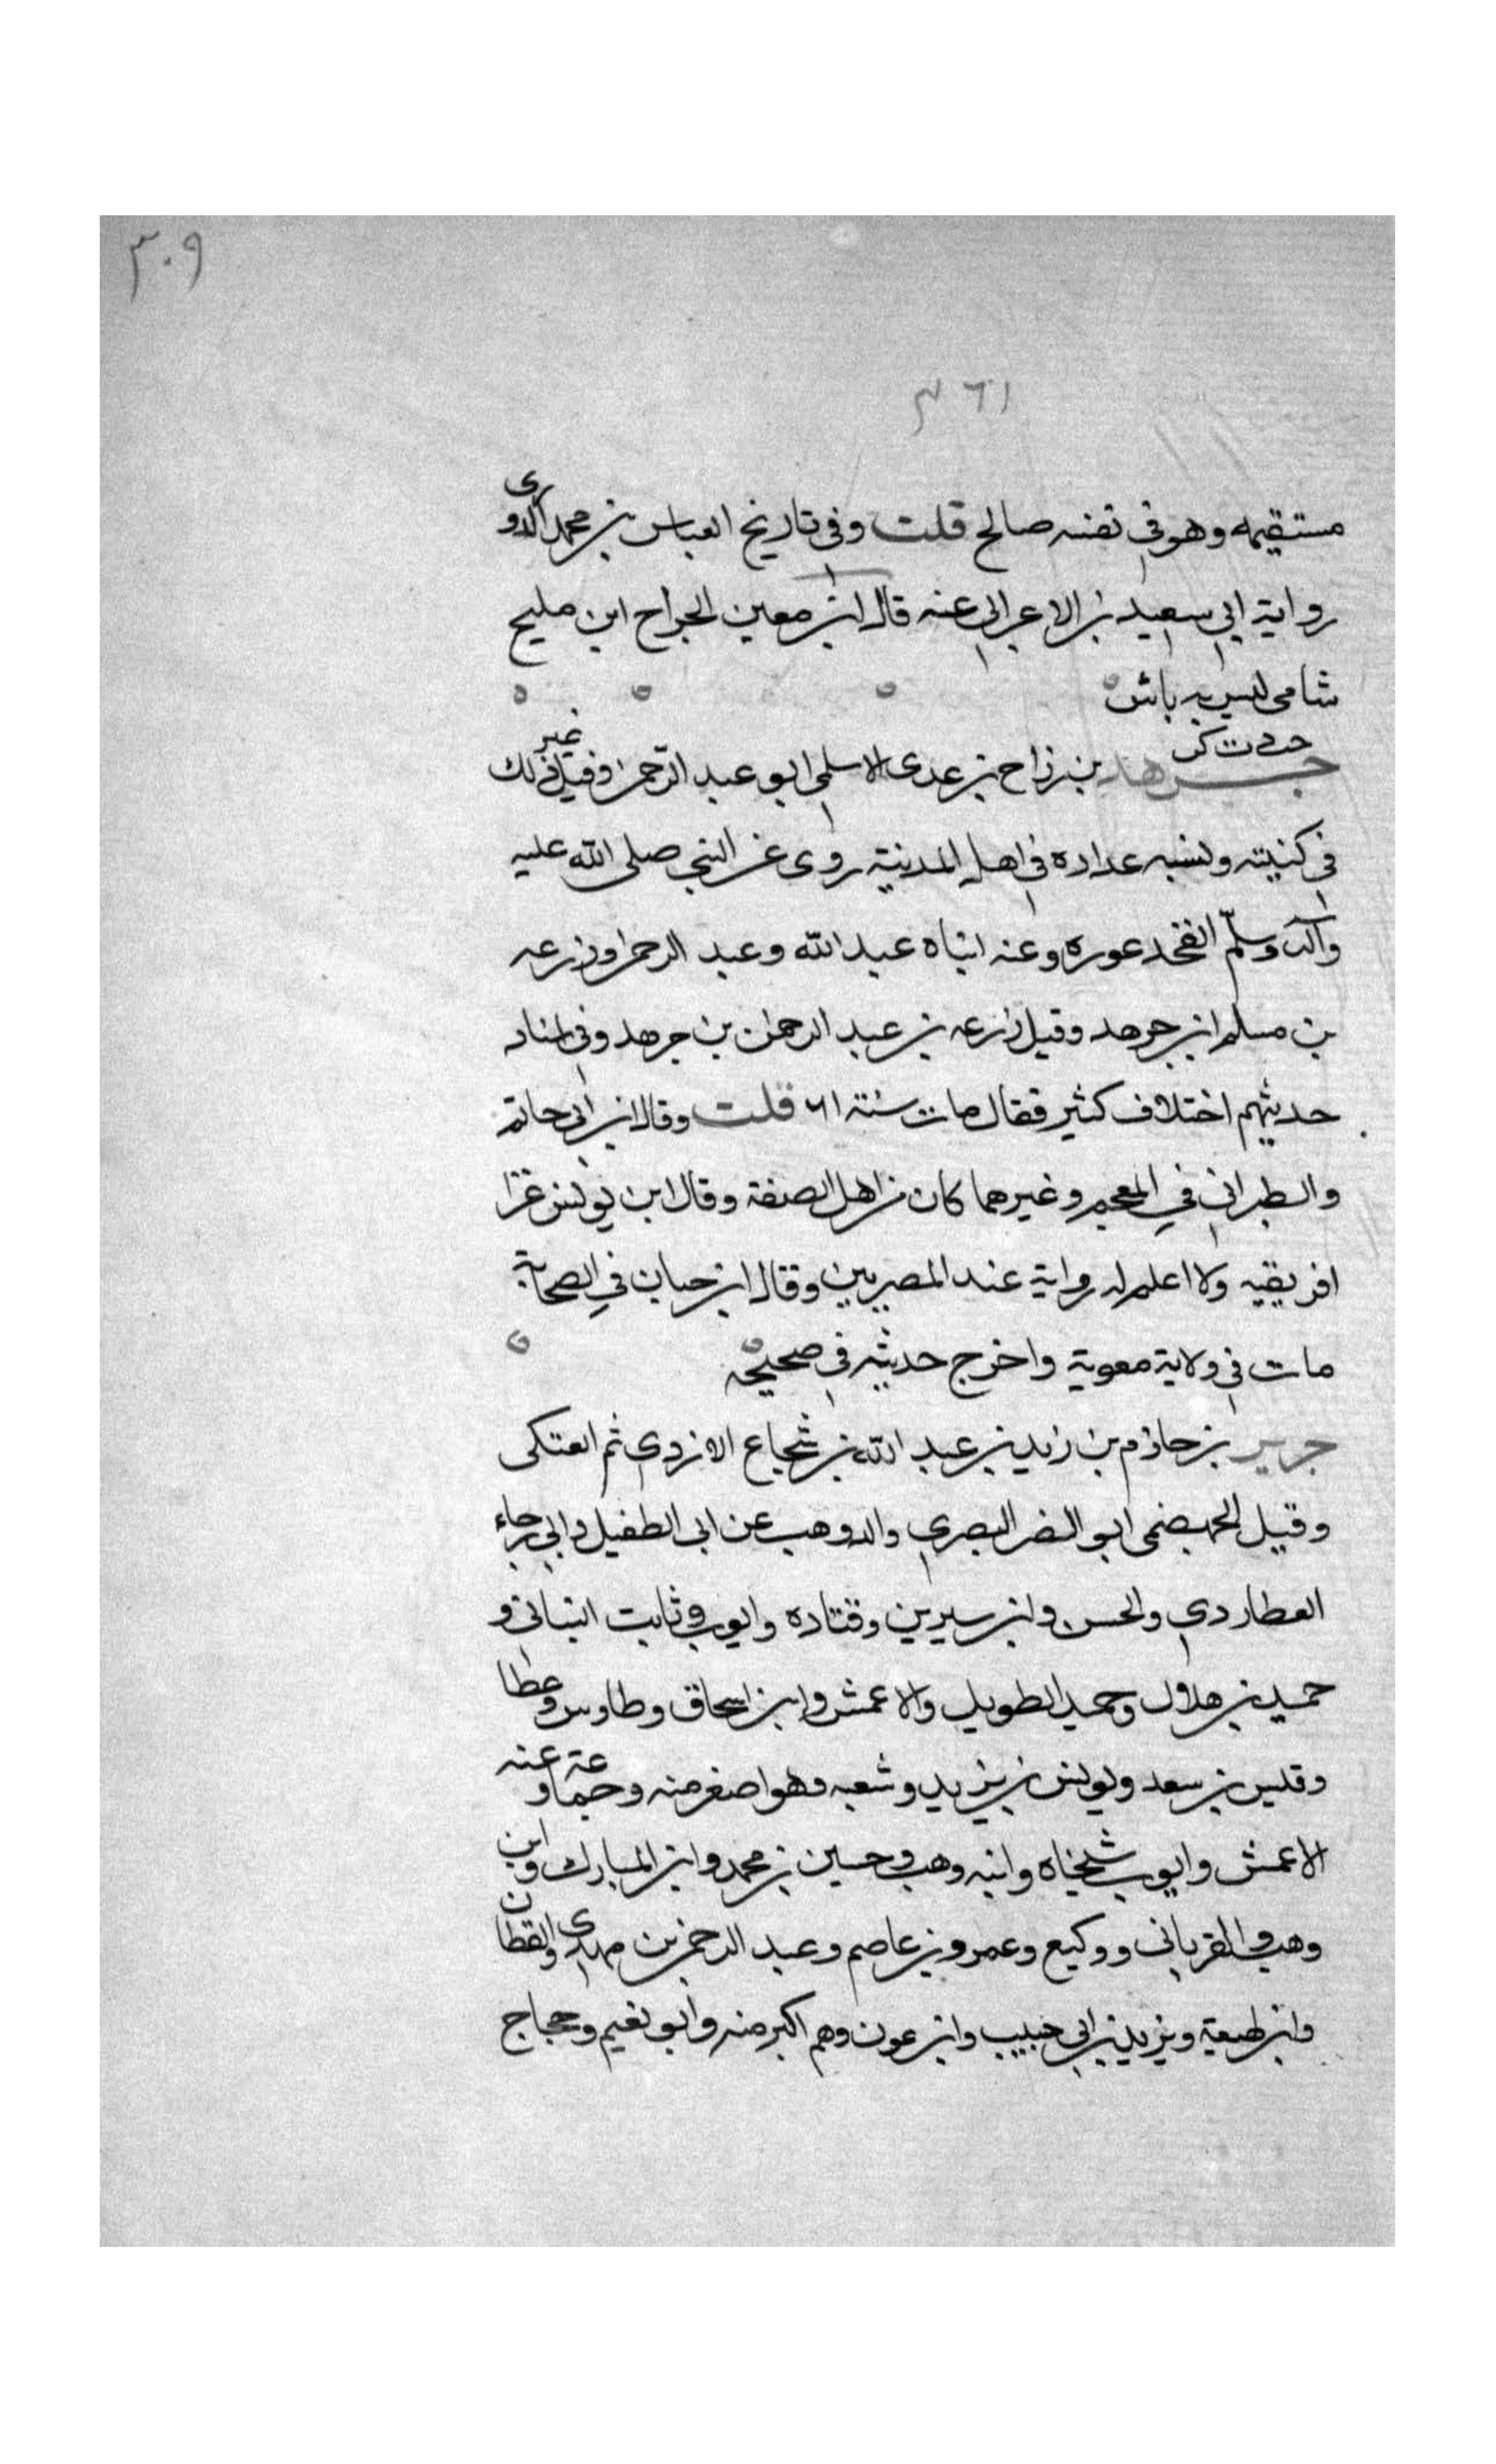 ٣٠٩
٣٦١
مستقيمه وهو في نفسه صالح قلت وفي تاريخ العباس بن محمد الدوري
رواية ابي سعيد بن الاعرابي عنه قال ابن معين الجراح ابن مليح
شامي ليس به باس
خت د ت كن
جرهد بن رزاح بن عدى الاسلمي ابو عبد الرحمن وقيل غير ذلك
في كنيته ونسبه عداده في اهل المدينة روى عن النبي صلى الله عليه
وآله وسلم الفخد عوره وعنه ابناه عبد الله وعبد الرحمن وزرعه
بن مسلم ابن جرهد وقيل زرعه بن عبد الرحمن بن جرهد وفي اسناد
حديثهم اختلاف كثير فقال مات سنة ٦١ قلت وقال ابن ابي حاتم
والطبراني في المعجم وغيرهما كان من اهل الصفة وقال ابن يونس غزا
افريقيه ولا اعلم له رواية عند المصريين وقال ابن حبان في الصحابة
مات في ولاية معوية واخرج حديثه في صحيحه
جرير بن حازم بن زيد بن عبد الله بن شجاع الازدي ثم العتكى
وقيل الجهضمى ابو النضر البصري والد وهب عن ابى الطفيل وابي رجاء
العطاردي والحسن وابن سيرين وقتاده وايوب وثابت البنانى و
حميد بن هلال وحميد الطويل والاعمش وابن اسحاق وطاوس وعطا
وقيس بن سعد ويونس بن يزيد وشعبه وهو اصغر منه وجماعة وعنه
الاعمش وايوب شيخاه وابنه وهب وحسين بن محمد وابن المبارك وابن
وهب والفريابى ووكيع وعمرو بن عاصم وعبد الرحمن بن مهدى والقطان
وابن لهيعة ويزيد بن ابي حبيب وابن عون وهم اكبر منه وابو نعيم وحجاج